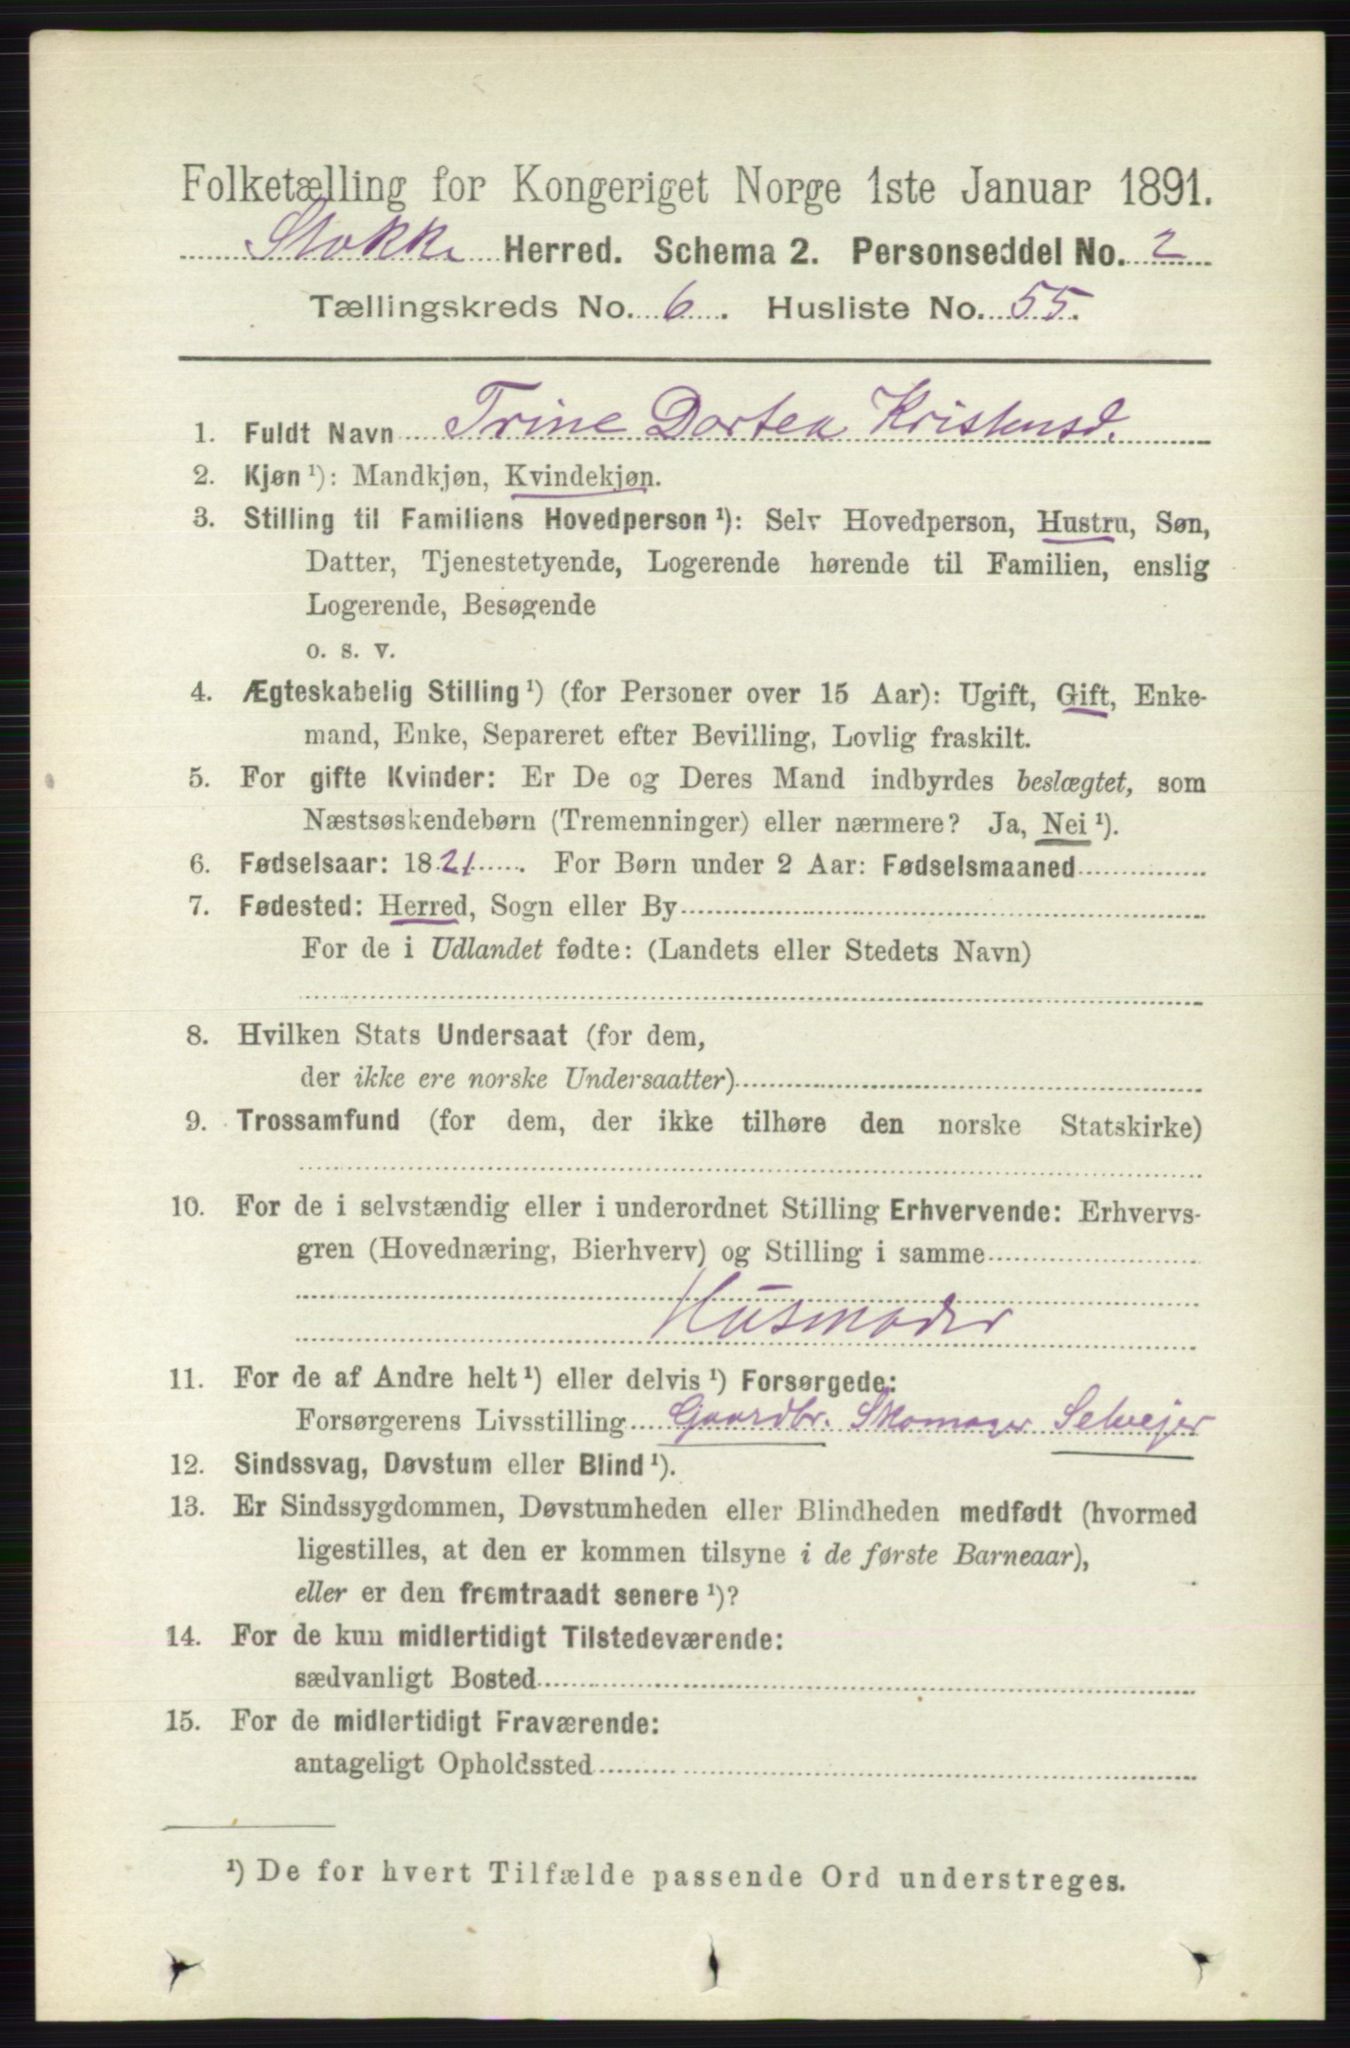 Folketælling for Kongeriget Norge 1ste Januar 1891.
Stokke Herred. Schema 2. Personseddel No. 2
Tællingskreds No. 6. Husliste No. 55.
1. Fuldt Navn Trine Dortea Kristensd.
2. Kjøn ¹): Mandkjøn, Kvindekjøn.
3. Stilling til Familiens Hovedperson ¹): Selv Hovedperson, Hustru, Søn,
Datter, Tjenestetyende, Logerende hørende til Familien, enslig
Logerende, Besøgende
o. s. v.
4. Ægteskabelig Stilling ¹) (for Personer over 15 Aar): Ugift, Gift, Enke-
mand, Enke, Separeret efter Bevilling, Lovlig fraskilt.
5. For gifte Kvinder: Er De og Deres Mand indbyrdes beslægtet, som
Næstsøskendebørn (Tremenninger) eller nærmere? Ja, Nei ¹).
6. Fødselsaar: 1821. For Børn under 2 Aar: Fødselsmaaned
7. Fødested: Herred, Sogn eller By
For de i Udlandet fødte: (Landets eller Stedets Navn)
8. Hvilken Stats Undersaat (for dem,
der ikke ere norske Undersaatter)
9. Trossamfund (for dem, der ikke tilhøre den norske Statskirke)
10. For de i selvstændig eller i underordnet Stilling Erhvervende: Erhvervs-
gren (Hovednæring, Bierhverv) og Stilling i samme
Husmoder
11. For de af Andre helt ¹) eller delvis ¹) Forsørgede:
Forsørgerens Livsstilling Gaardbr. Skomager Selvejer
12. Sindssvag, Døvstum eller Blind ¹).
13. Er Sindssygdommen, Døvstumheden eller Blindheden medfødt (hvormed
ligestilles, at den er kommen tilsyne i de første Barneaar),
eller er den fremtraadt senere ¹)?
14. For de kun midlertidigt Tilstedeværende:
sædvanligt Bosted
15. For de midlertidigt Fraværende:
antageligt Opholdssted
¹) De for hvert Tilfælde passende Ord understreges.